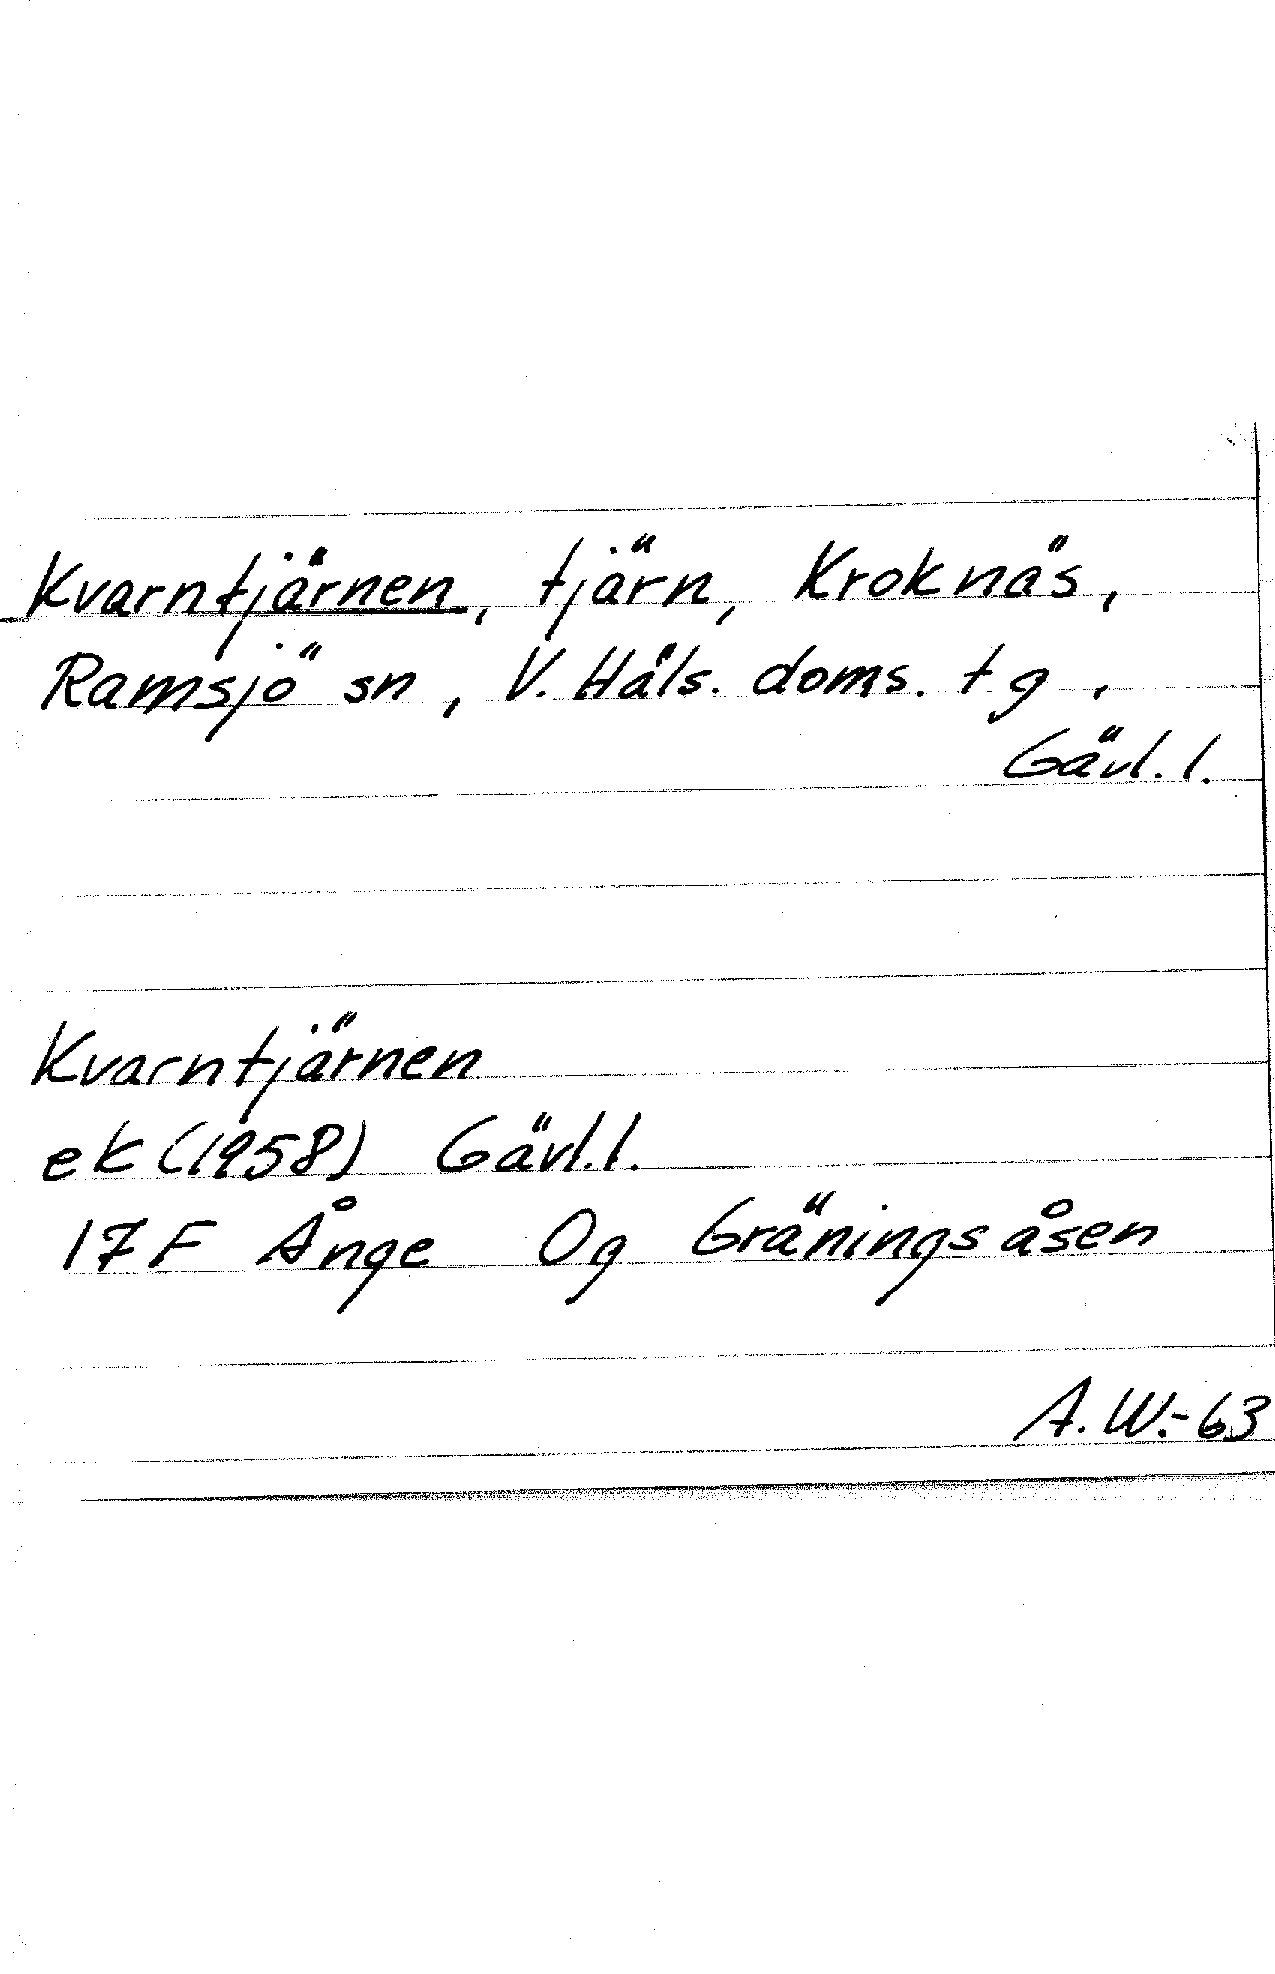 Kvarntjärnen, tjärn, Kroknäs,
Ramsjö sn, V. Häls. doms. tg,
Gävl. l.
Kvarntjärnen
ek (1958) Gävl. l.
17 F Ånge Og Gräningsåsen
A. W. - 63